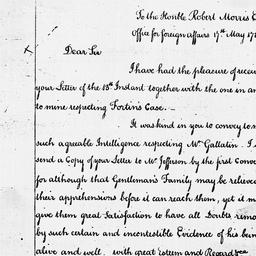 To the Honble Robert Morris
Office for foreign Affairs 17th May 17
Dear Sir
I have had the pleasure of
your Letter of the 18th Instant together with the one in an
to mine respecting Fortin's Case. —
It was kind in you to convey to
such agreeable Intelligence respecting Mr Gallatin. I
send a Copy of your Letter to Mr Jefferson by the first Conve
for although that Gentleman's Family may be relieve
their apprehensions before it can reach them, yet it
give them great Satisfaction to have all Doubts remo
by such certain and incontestible Evidence of his bein
alive and well. with great Esteem and Regard &ca